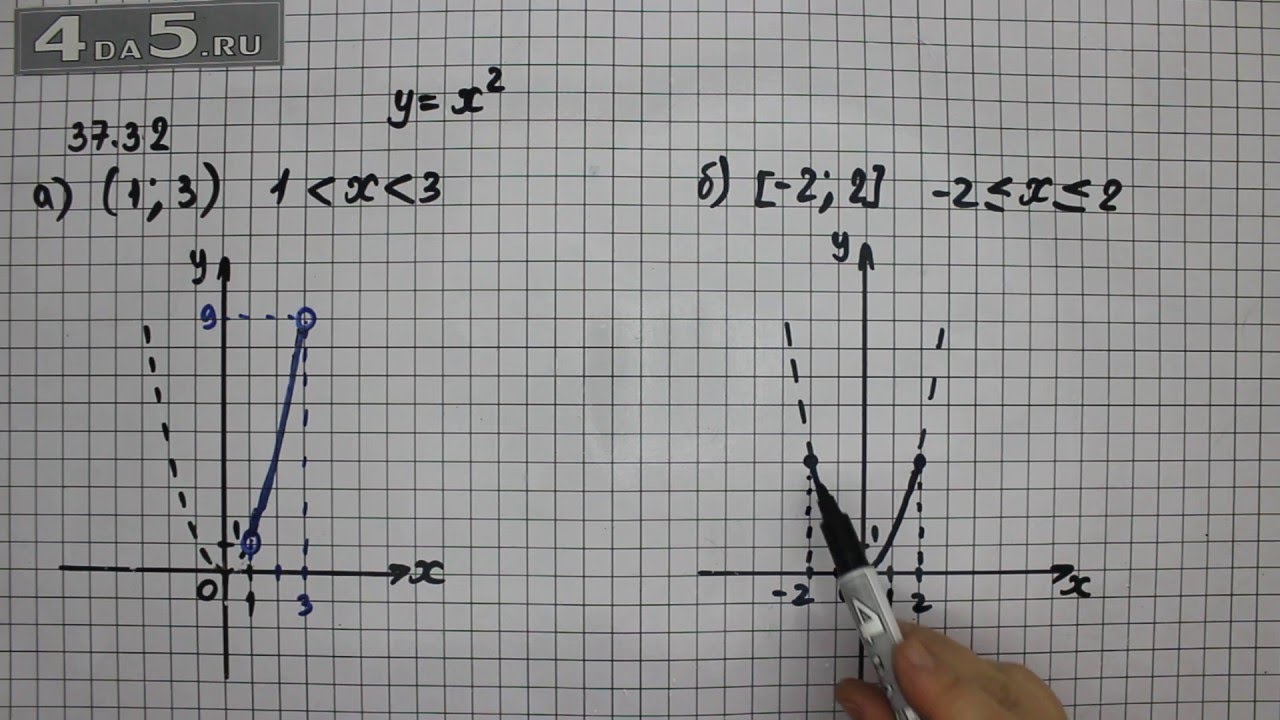 4DA5.RU
y = x²
37.32
а) (1; 3) 1 < x < 3
б) [-2; 2] -2 ≤ x ≤ 2
y
9
1
0
1
3
x
y
1
-2
2
x